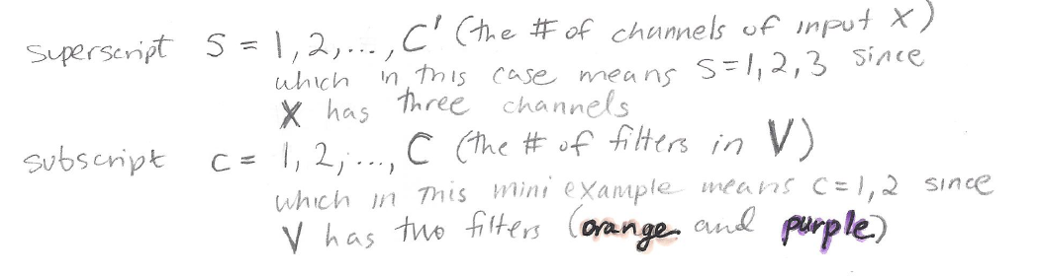 superscript S = 1, 2, ..., C' (the # of channels of input X)
which in this case means S=1, 2, 3 since
X has three channels
subscript c = 1, 2, ..., C (the # of filters in V)
which in this mini example means c=1, 2 since
V has two filters (orange and purple)